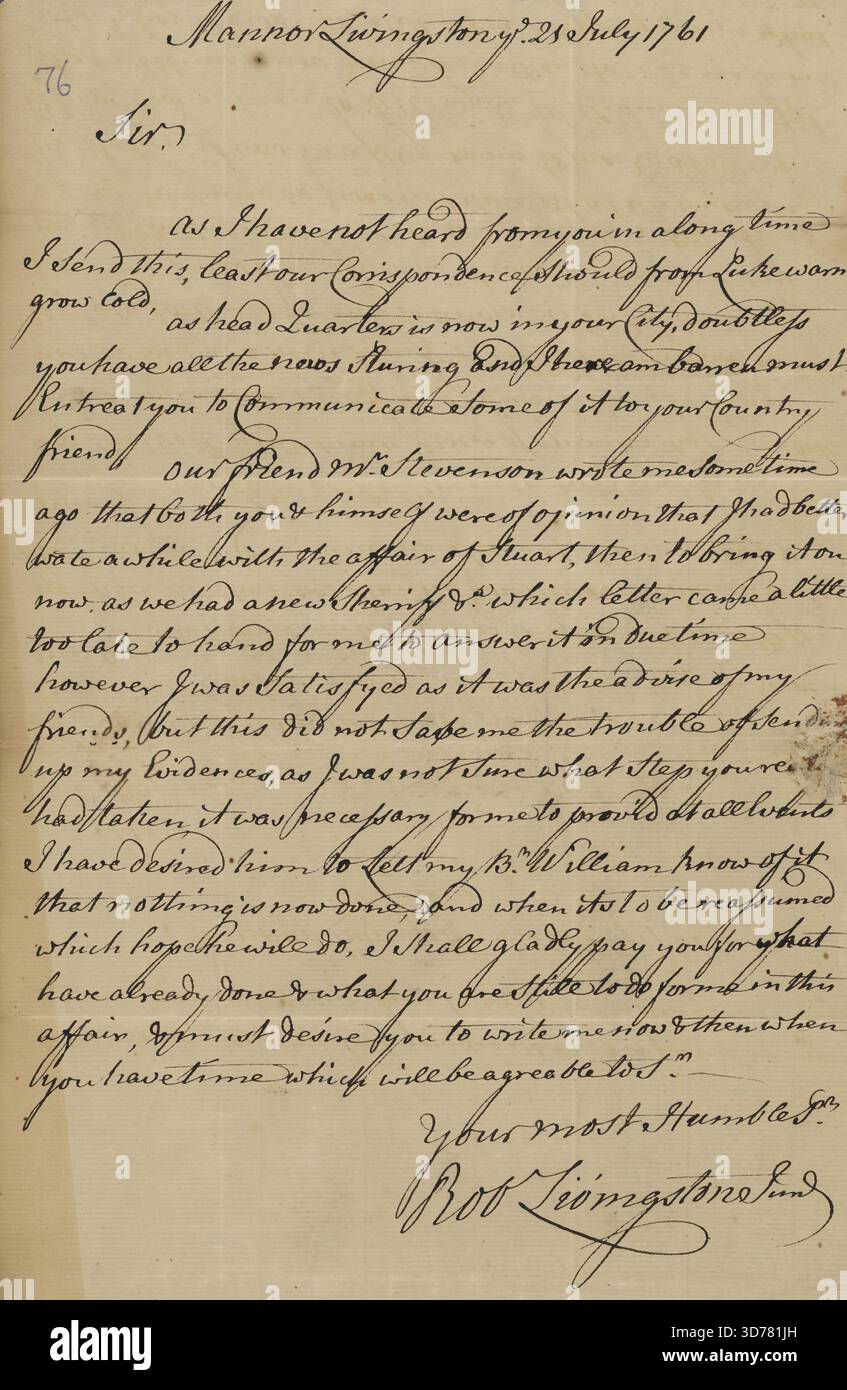 Mannor Livingston yᵉ. 21 July 1761
76
Sir.
as I have not heard from you in a long time
I send this, least our Corrispondence should from Lukewarm
grow Cold,
as head Quarters is now in your City, doubtless
you have all the news Sturing And I here am barren must
Entreat you to Communicate some of it to your Country
friend,
our friend Mr. Stevenson wrote me some time
ago that both you & himself were of opinion that I had better
wate a while with the affair of Stuart, then to bring it on
now. as we had a new Sherriff &ca. which letter came a little
too late to hand for me to answer it in due time
however I was Satisfyed as it was the advise of my
friends, but this did not Save me the trouble of
up my Evidences, as I was not Sure what Step you
had taken it was necessary for me to provid at all Events
I have desired him to Lett my Br. William know of it
that nothing is now done, and when its to be reassumed
which hope he will do, I shall gladly pay you for what
have already done & what you are still to do for me in this
affair, & must desire you to write me now & then when
you have time which will be agreable to Sr.
Your most Humble Sr.
Robt Livingston Junr
alamy
Image ID: 3D781JH
www.alamy.com